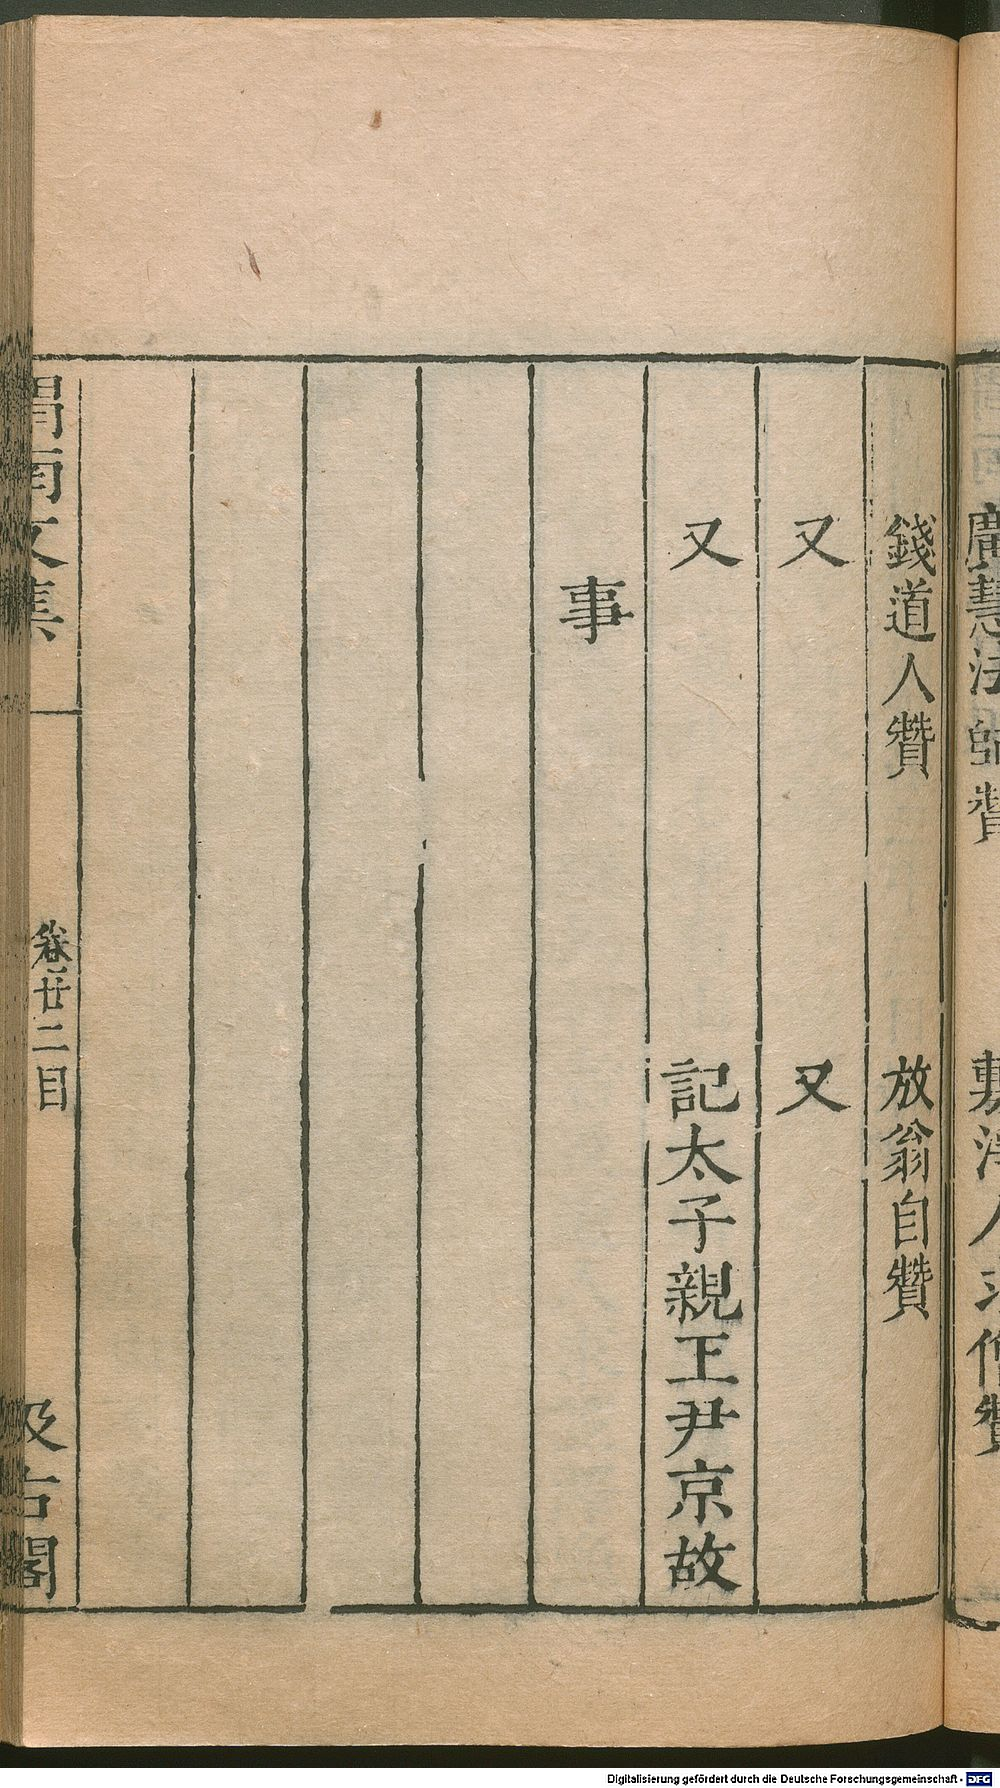 廣慧法師贊　敷淨人求僧贊
錢道人贊　放翁自贊
又　又
又　記太子親王尹京故
事
渭南文集　卷廿二目　汲古閣
Digitalisierung gefördert durch die Deutsche Forschungsgemeinschaft - DFG